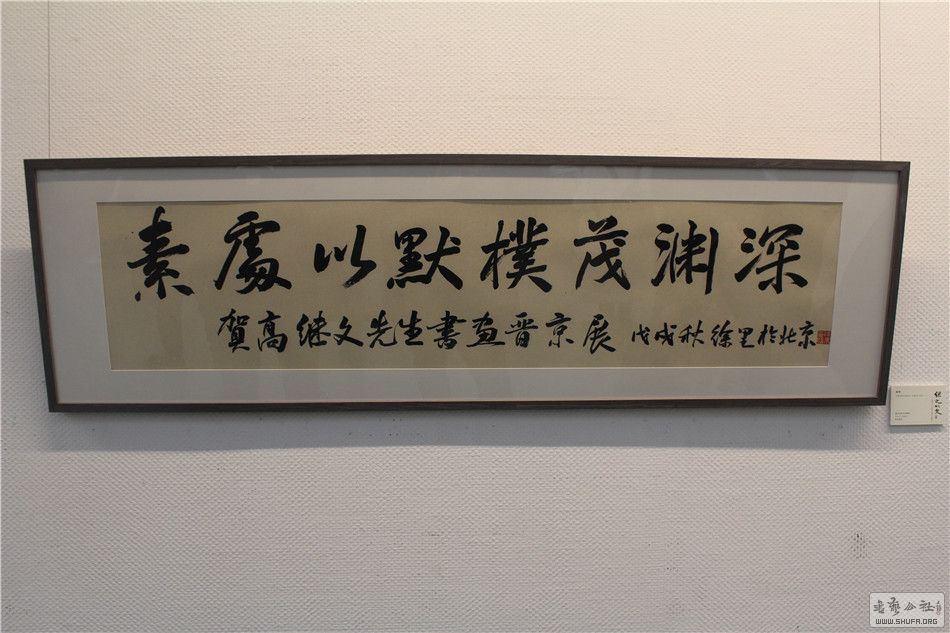 素處以默樸茂渊深
賀高继文先生書画晋京展 戊戌秋徐里於北京
继之以文
書藝公社
WWW.SHUFA.ORG